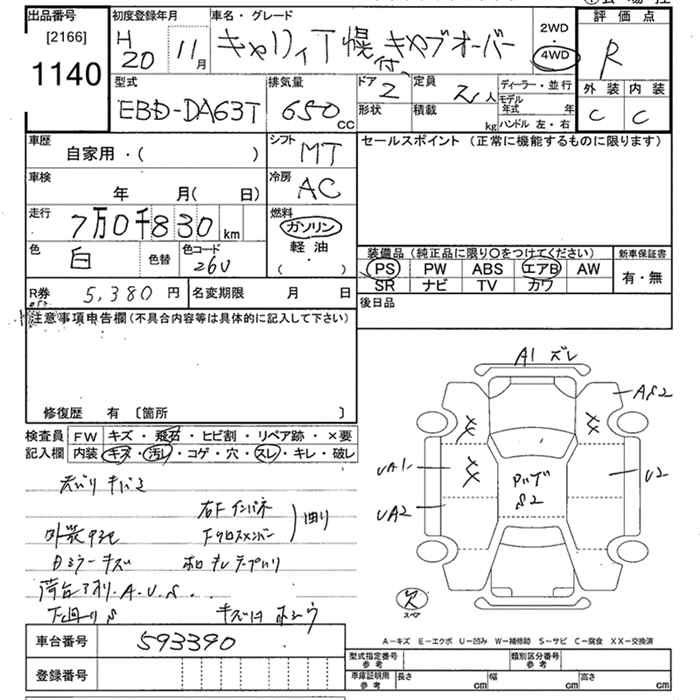 出品番号
[2166]
1140
初度登録年月
H 20 11月
車名・グレード
キャリィT 幌付、キャブオーバー
2WD
4WD
評価点
R
外装 内装
C C
型式
EBD-DA63T
排気量
650 cc
ドア
2
形状
定員
2人
積載
kg
ディーラー・並行
モデル年式 年
ハンドル 左・右
車歴
自家用・( )
シフト
MT
セールスポイント (正常に機能するものに限ります)
車検
年 月( 日)
冷房
AC
走行
7万0千830km
燃料
ガソリン
軽油
( ・ )
色
白
色替
色コード
26U
装備品(純正品に限り○をつけてください)
PS PW ABS エアB AW
SR ナビ TV カワ
新車保証書
有・無
R券
5,380円
名変期限 月 日
後日品
注意事項申告欄(不具合内容等は具体的に記入して下さい)
修復歴 有 〔箇所 〕
検査員記入欄
FW キズ・飛石・ヒビ割・リペア跡・×要
内装 キズ・汚レ・コゲ・穴・スレ・キレ・破レ
右Fインパネ
Fクロスメンバー 曲り
外装
Dミラーキズ
荷台アオリ A.U.S..
下廻りS
A1 ズレ
AS2
UA1
UA2
U2
S2
欠
スペア
車台番号
593390
登録番号
A-キズ E-エクボ U-凹み W-補修跡 S-サビ C-腐食 XX-交換済
型式指定番号
参考
類別区分番号
参考
車庫証明用
参考
長さ cm 幅 cm 高さ cm